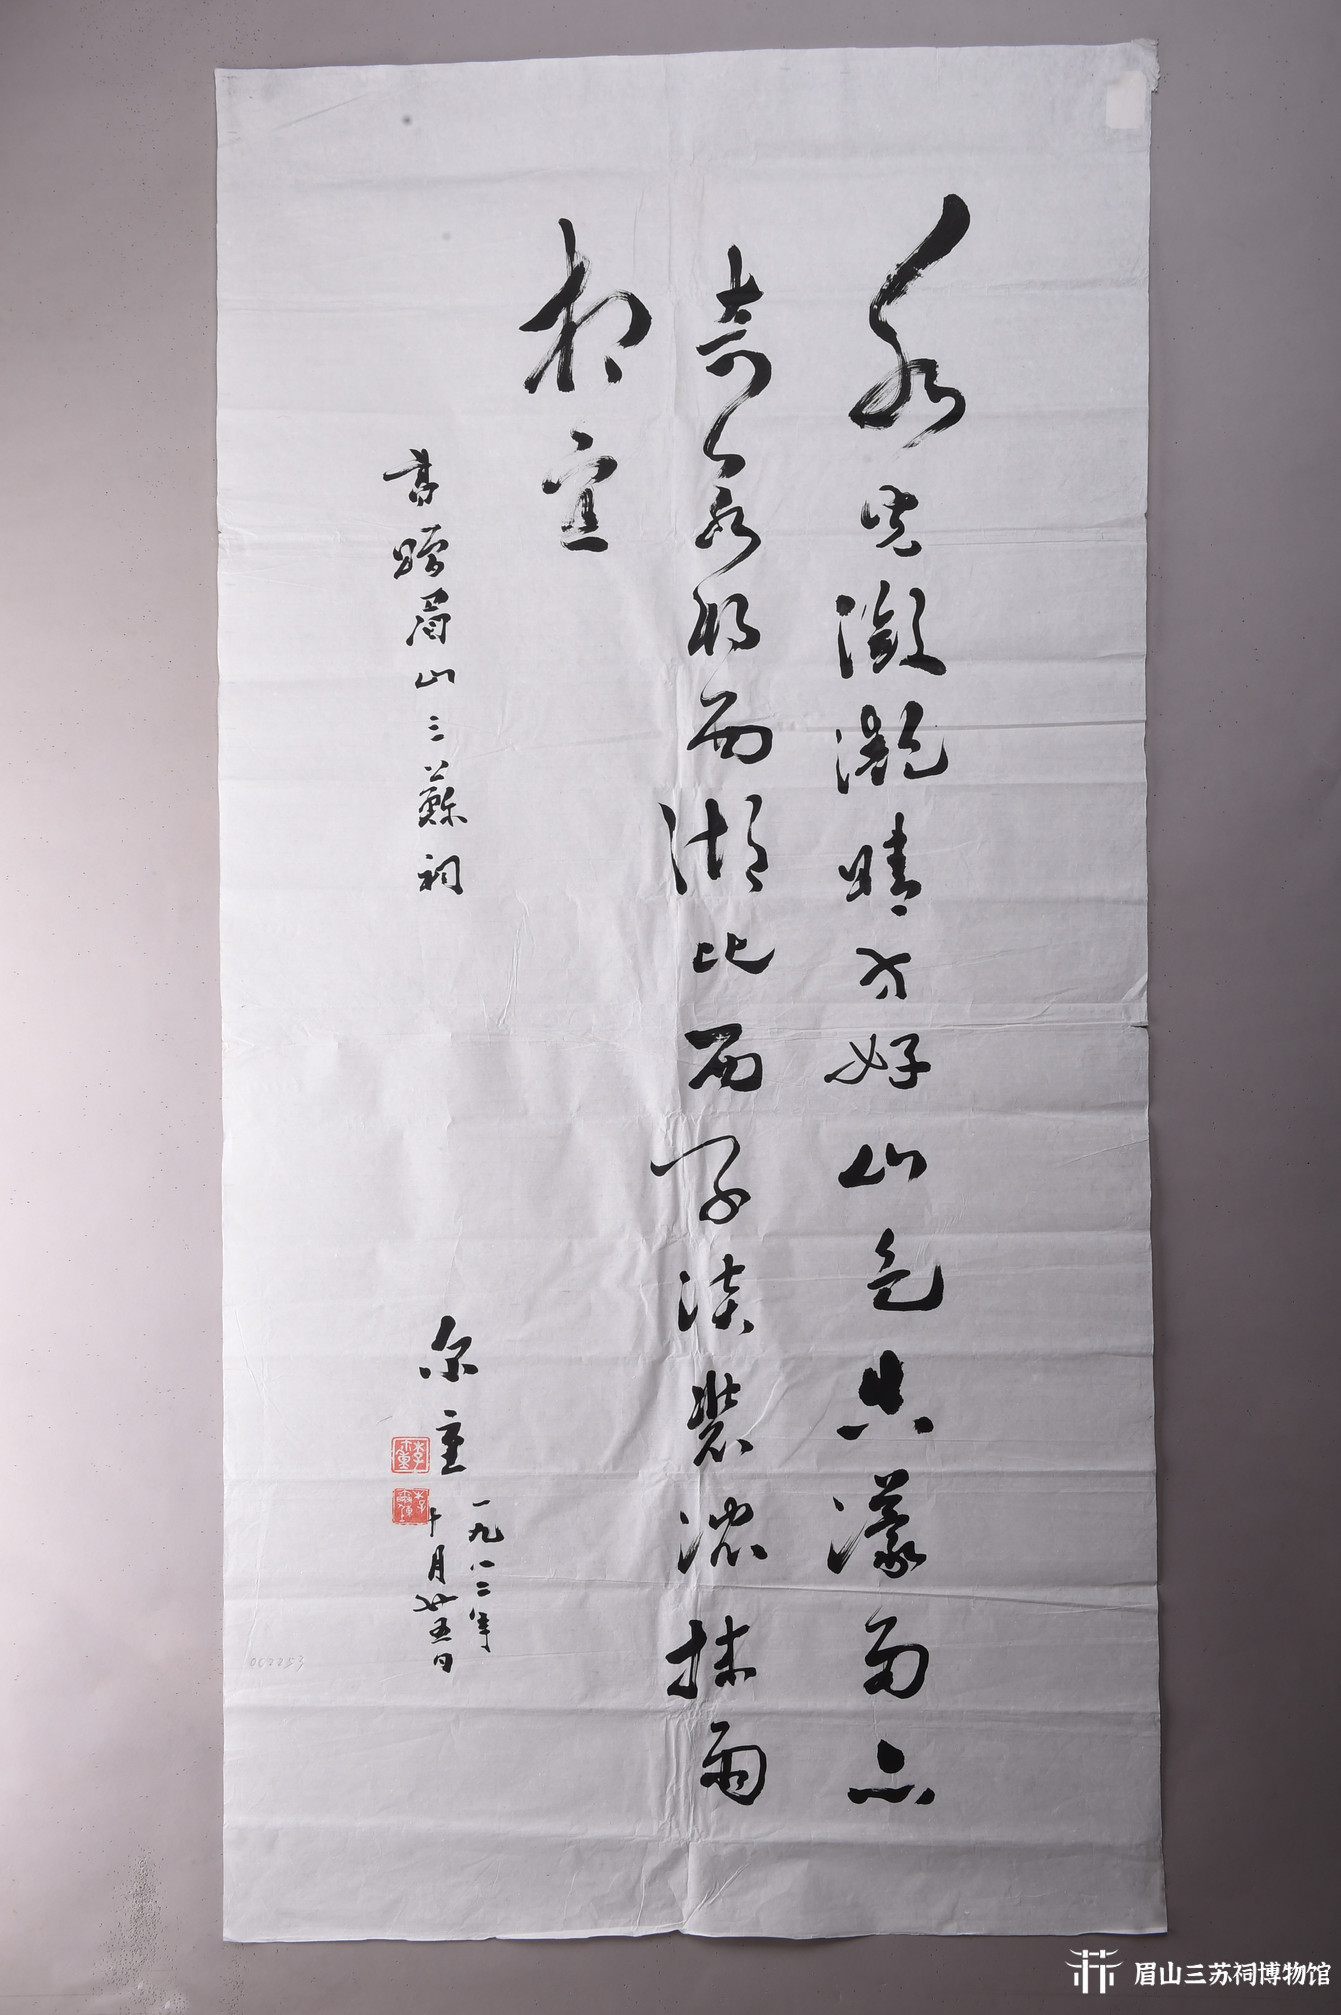 水光瀲灔晴方好山色空濛雨亦
奇欲把西湖比西子淡裝濃抹兩
相宜
書贈眉山三蘇祠
尔重
一九八二年
十月廿五日
眉山三苏祠博物馆